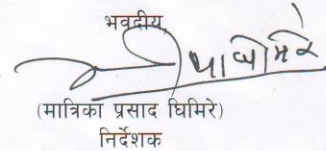 भवदीय,
(मात्रिका प्रसाद घिमिरे)
निर्देशक